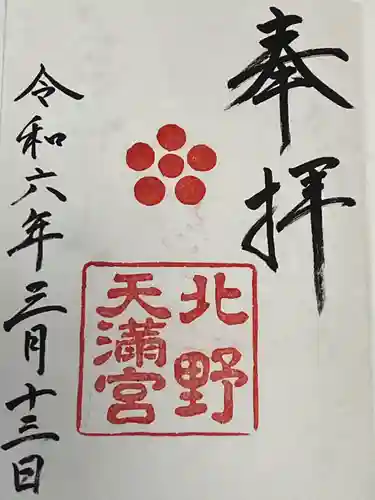 奉拝
北野
天満宮
令和六年三月十三日